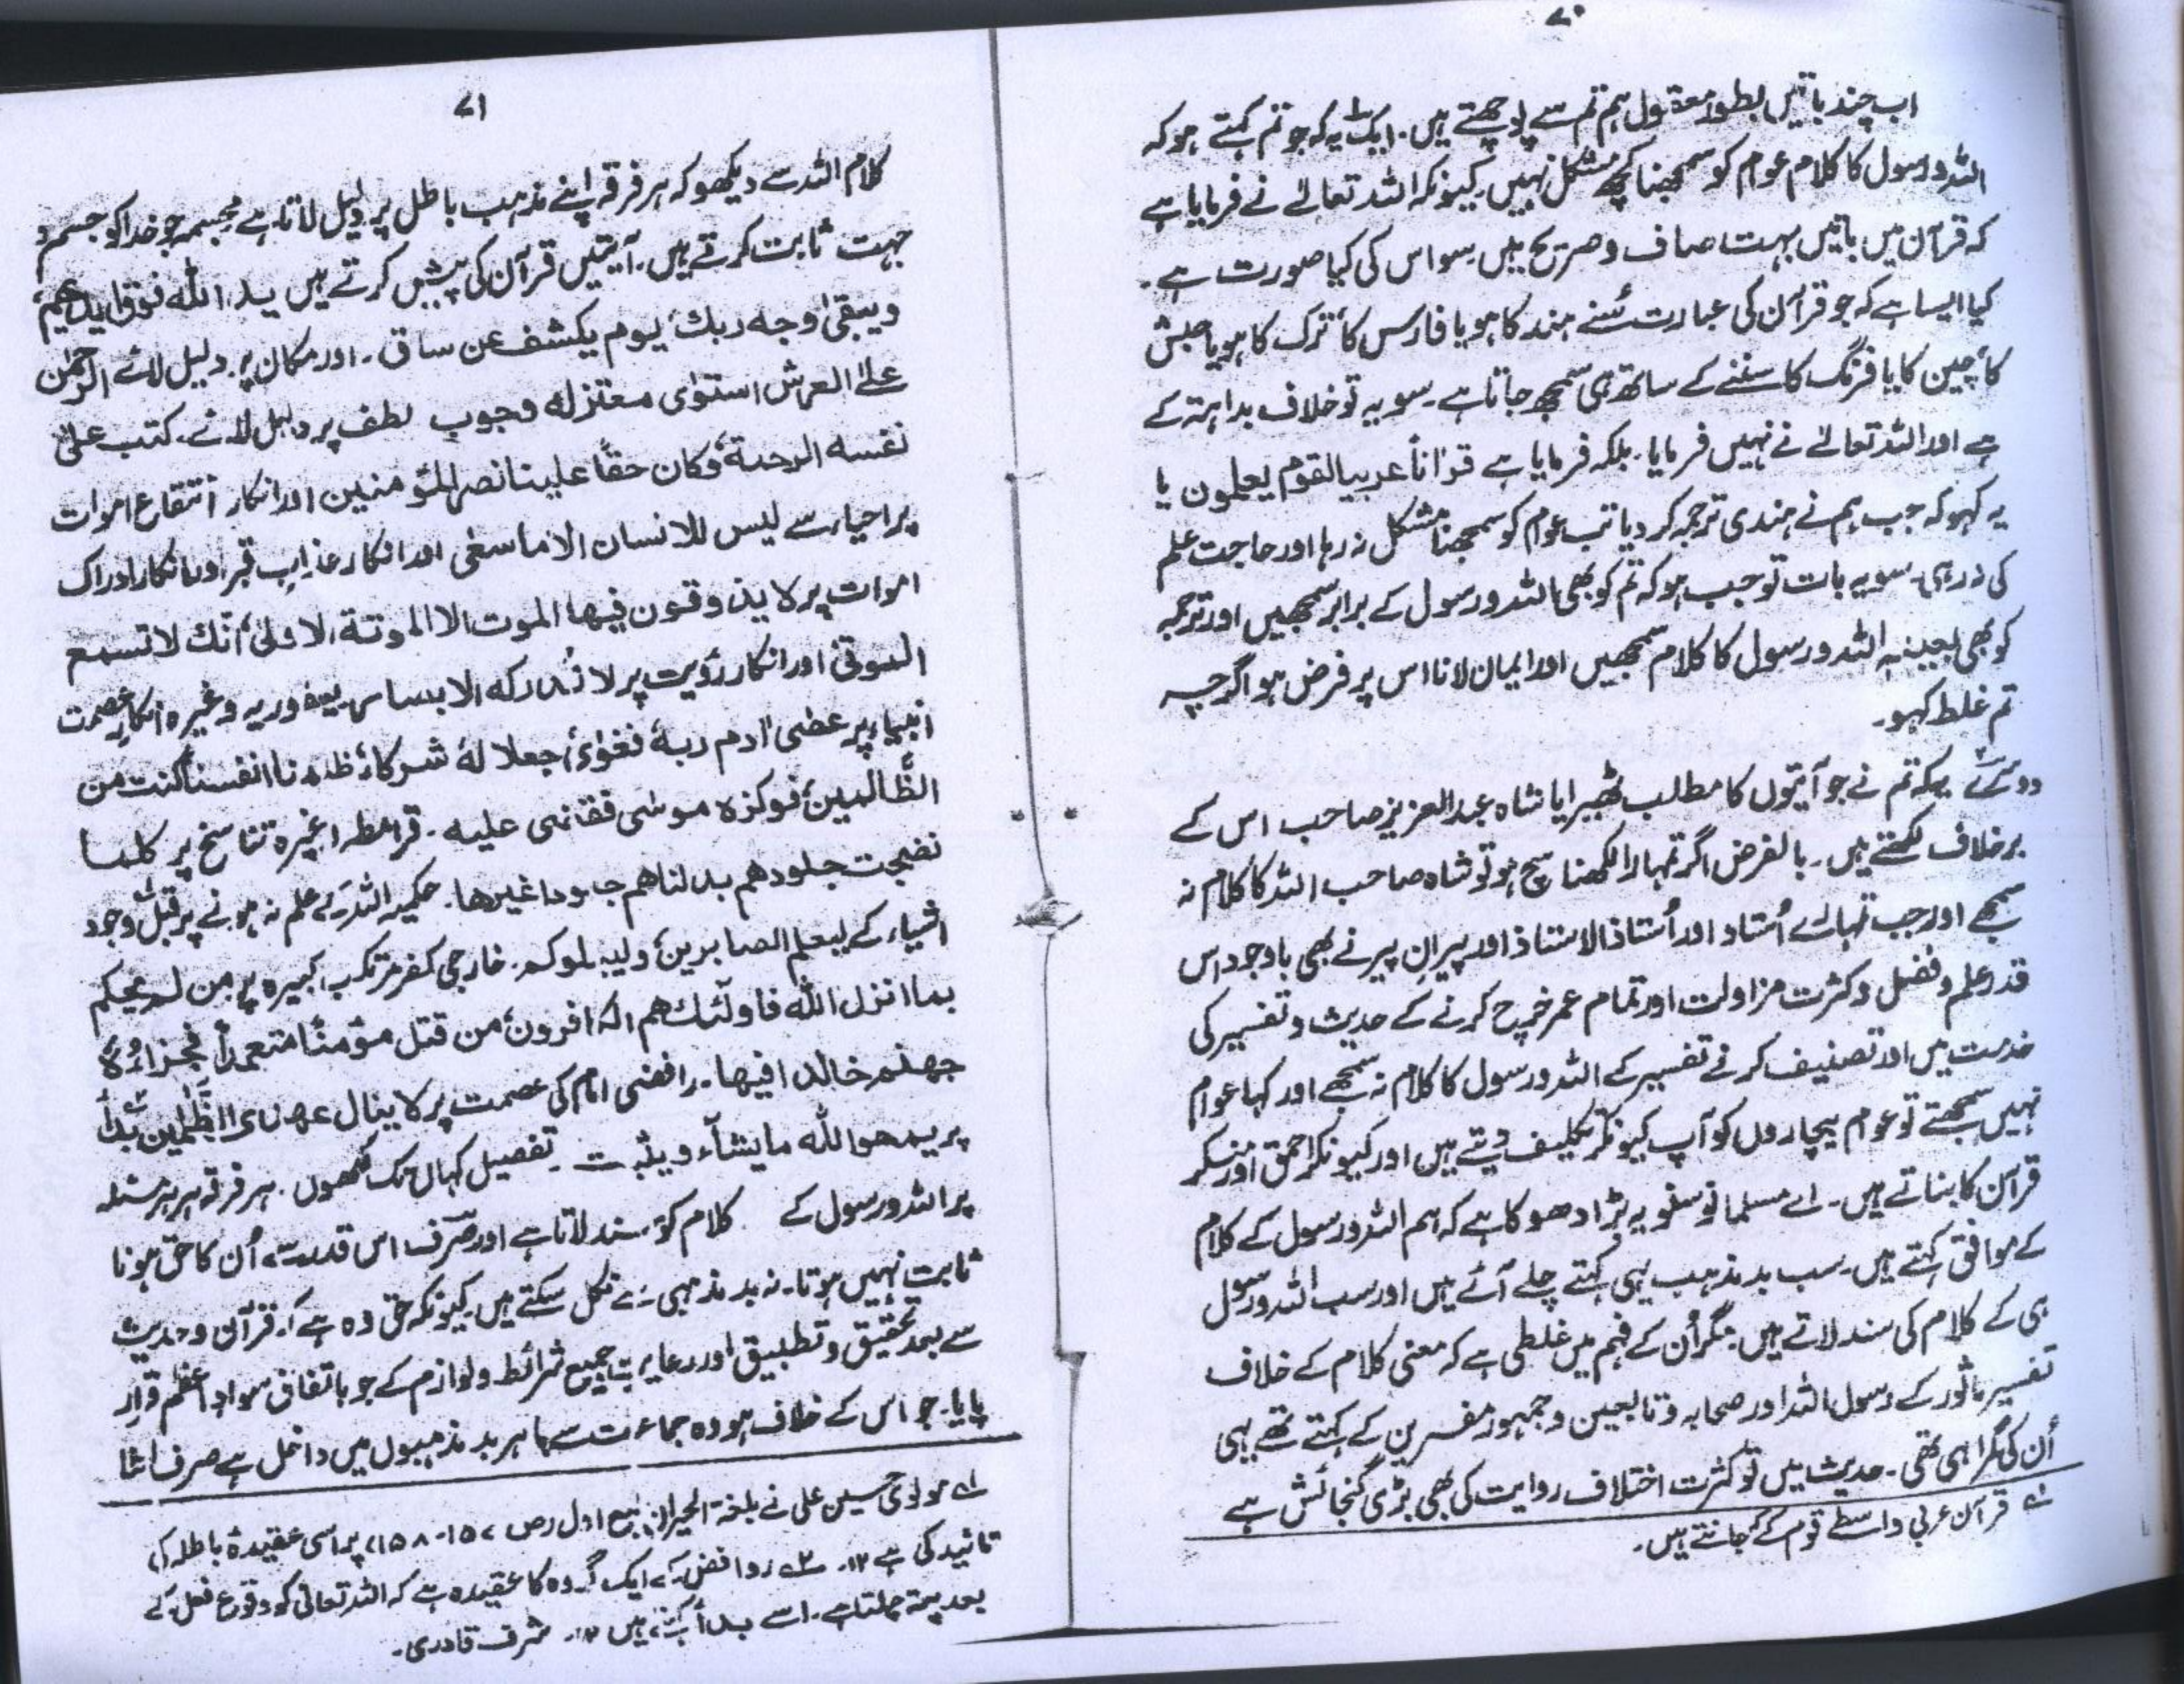 ۷۰
اب چند باتیں بطور معقول ہم تم سے پوچھتے ہیں۔ ایک یہ کہ جو تم کہتے ہو کہ
اللہ و رسول کا کلام عوام کو سمجھنا کچھ مشکل نہیں۔ کیونکہ اللہ تعالےٰ نے فرمایا ہے
کہ قرآن میں باتیں بہت صاف و صریح ہیں سو اس کی کیا صورت ہے۔
کیا ایسا ہے کہ جو قرآن کی عبارت سُنے ہند کا ہو یا فارس کا، ترک کا ہو یا حبش
کا، چین کا یا فرنگ کا سننے کے ساتھ ہی سمجھ جاتا ہے۔ سو یہ تو خلاف بداہتہ کے
ہے اور اللہ تعالےٰ نے نہیں فرمایا۔ بلکہ فرمایا ہے قرانا عربیا لقوم یعلمون یا
یہ کہو کہ جب ہم نے ہندی ترجمہ کر دیا تب عوام کو سمجھنا مشکل نہ رہا اور حاجت علم
کی نہ رہی۔ سو یہ بات تو جب ہو کہ تم کو بھی اللہ و رسول کے برابر سمجھیں اور ترجمہ
کو بھی بعینہٖ اللہ و رسول کا کلام سمجھیں اور ایمان لانا اس پر فرض ہو اگرچہ
تم غلط کہو۔
دوسرے یہ کہ تم نے جو آیتوں کا مطلب ٹھیرایا شاہ عبدالعزیز صاحب اس کے
برخلاف لکھتے ہیں۔ بالفرض اگر تمہارا لکھنا سچ ہو تو شاہ صاحب اللہ کا کلام نہ
سمجھے اور جب تمہارے اُستاد اور اُستاذ الاستاذ اور پیرانِ پیر نے بھی باوجود اس
قدر علم و فضل و کثرت مزاولت اور تمام عمر خرچ کرنے کے حدیث و تفسیر کی
خدمت میں اور تصنیف کرنے تفسیر کے اللہ و رسول کا کلام نہ سمجھے اور کہا عوام
نہیں سمجھتے تو عوام بیچاروں کو آپ کیونکر تکلیف دیتے ہیں اور کیونکر احمق اور منکر
قرآن کا بناتے ہیں۔ اے مسلمانو سنو یہ بڑا دھوکا ہے کہ ہم اللہ و رسول کے کلام
کے موافق کہتے ہیں۔ سب بد مذہب یہی کہتے چلے آئے ہیں اور سب اللہ و رسول
ہی کے کلام کی سند لاتے ہیں۔ مگر اُن کے فہم میں غلطی ہے کہ معنی کلام کے خلاف
تفسیر ماثور کے رسول اللہ اور صحابہ و تابعین و جمہور مفسرین کے کہتے تھے یہی
اُن کی گمراہی تھی۔ حدیث میں تو کثرت اختلاف روایت کی بھی بڑی گنجائش ہے
لہ قرآن عربی واسطے قوم کے کہ جانتے ہیں۔
۷۱
کلام اللہ سے دیکھو کہ ہر فرقہ اپنے مذہب باطل پر دلیل لاتا ہے مجسمہ جو خدا کو جسم و
جہت ثابت کرتے ہیں۔ آیتیں قرآن کی پیش کرتے ہیں ید اللہ فوق ایدیھم،
ویبقیٰ وجہ ربک، یوم یکشف عن ساق۔ اور مکان پر دلیل لائے الرحمٰن
علی العرش استویٰ معتزلہ وجوب لطف پر دلیل لائے۔ کتب علیٰ
نفسہ الرحمۃ، وکان حقاً علینا نصر المؤمنین اور انکار انتفاع اموات
پر احیاء سے لیس للانسان الا ما سعٰی اور انکار عذاب قبر اور انکار ادراک
اموات پر لا یذوقون فیھا الموت الا الموتۃ الاولیٰ، انک لا تسمع
الموتیٰ اور انکار رؤیت پر لا تُدرکہ الابصار وغیرہ انکار عصمت
انبیاء پر عصٰی اٰدم ربہٗ فغویٰ، جعلا لہٗ شرکاء، ظلمنا انفسنا، کنت من
الظّالمین، فوکزہ موسٰی فقضٰی علیہ۔ قرامطہ وغیرہ تناسخ پر کلما
نضجت جلودھم بدلناھم جلودا غیرھا۔ حکمیہ اللہ کے علم نہ ہونے پر قبل وجود
اشیاء کے لیعلم الصابرین، ولیبلوکم۔ خارجی کفر مرتکب کبیرہ پر من لم یحکم
بما انزل اللہ فاولٓئک ھم الکافرون، من قتل مؤمنا متعمداً فجزاءُہٗ
جھنم خالدا فیھا۔ رافضی امام کی عصمت پر لا ینال عھدی الظّٰلمین بَدأ
پر یمحو اللہ ما یشآء و یثبت۔ تفصیل کہاں تک لکھوں۔ ہر فرقہ ہر ہر مسئلہ
پر اللہ و رسول کے کلام کو سند لاتا ہے اور صرف اس قدر سے اُن کا حق ہونا
ثابت نہیں ہوتا۔ نہ بد مذہبی سے نکل سکتے ہیں۔ کیونکہ حق وہ ہے کہ قرآن و حدیث
سے بعد تحقیق و تطبیق اور رعایت جمیع شرائط و لوازم کے جو باتفاق سوادِ اعظم قرار
پایا۔ جو اس کے خلاف ہو وہ جماعت سے باہر بد مذہبوں میں داخل ہے صرف اتنا
لہ مولوی حسین علی نے بلغۃ الحیران طبع اول (ص ۱۵۷-۱۵۸) پر اسی عقیدۂ باطلہ کی
تائید کی ہے ۱۲۔ ۲ روافض کے ایک گروہ کا عقیدہ ہے کہ اللہ تعالیٰ کو وقوع فعل کے
بعد پتہ چلتا ہے۔ اسے بدأ کہتے ہیں ۱۲۔ شرف قادری۔